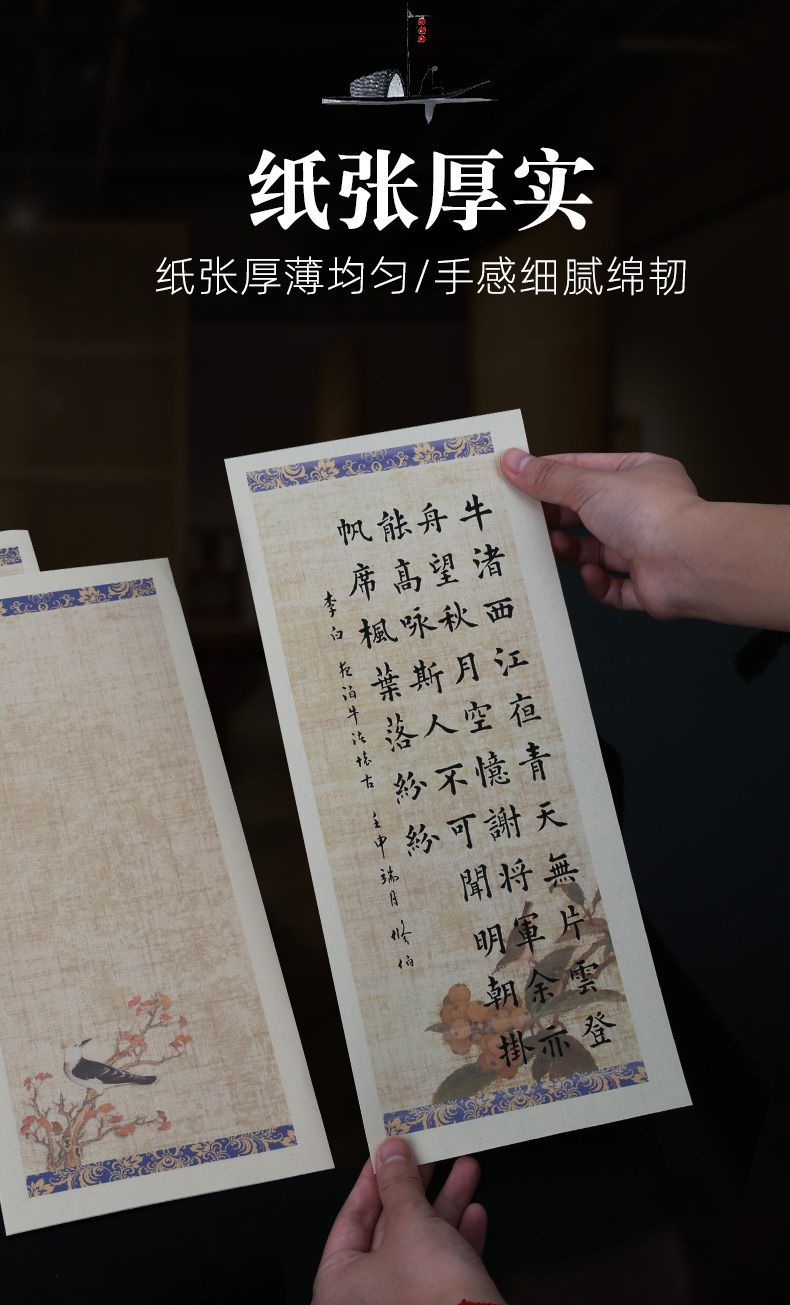 纸张厚实
纸张厚薄均匀/手感细腻绵韧
牛渚西江夜青天無片雲登
舟望秋月空憶謝将軍余亦
能高咏斯人不可聞明朝掛
帆席楓葉落紛紛
李白夜泊牛渚懷古 壬申端月 修伯